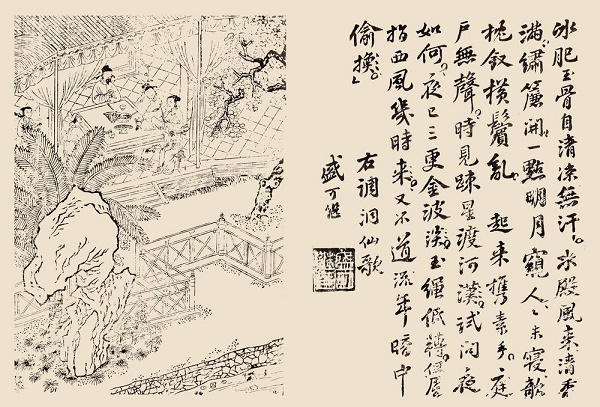 冰肌玉骨自清凉無汗。水殿風来清香
滿。繡簾開一點明月窺人〻未寢欹
枕釵橫鬢亂。起来攜素手。庭
戶無聲。時見疎星渡河漢。試問夜
如何。夜已三更金波淡。玉繩低轉但屈
指西風幾時来。又不道流年暗中
偷換」
右調洞仙歌
盛可